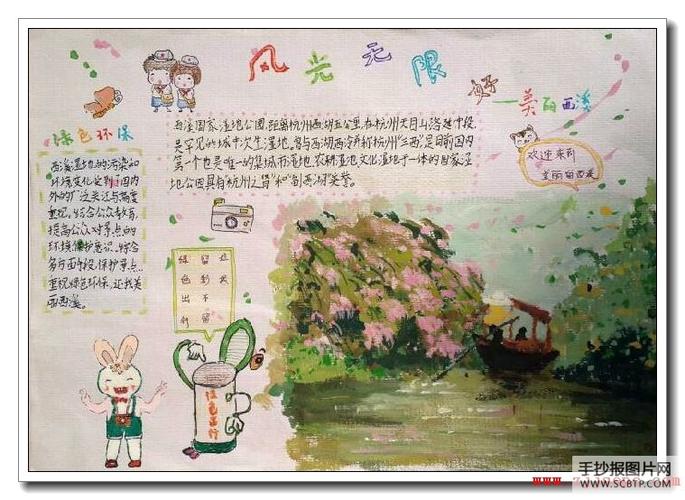 风光无限好
——美丽西溪
西溪国家湿地公园,距离杭州西湖五公里,在杭州天目山路延中段,
是罕见的城中次生湿地,曾与西湖西泠并称杭州"三西"是目前国内
第一个也是唯一的集城市湿地、农耕湿地文化湿地于一体的国家湿
地公园具有"杭州之肾"和"副西湖"美誉。
绿色环保
西溪湿地的污染和
环境变化受到国内
外的广泛关注与高度
重视,结合公众教育,
提高公众对景点的
环境保护意识。综合
多方面手段,保护景点,
重视绿色环保,还我美
丽西溪。
欢迎来到
美丽的西溪
留影不留
绿色出行
手抄报图片网
WWW.SCBTP.COM